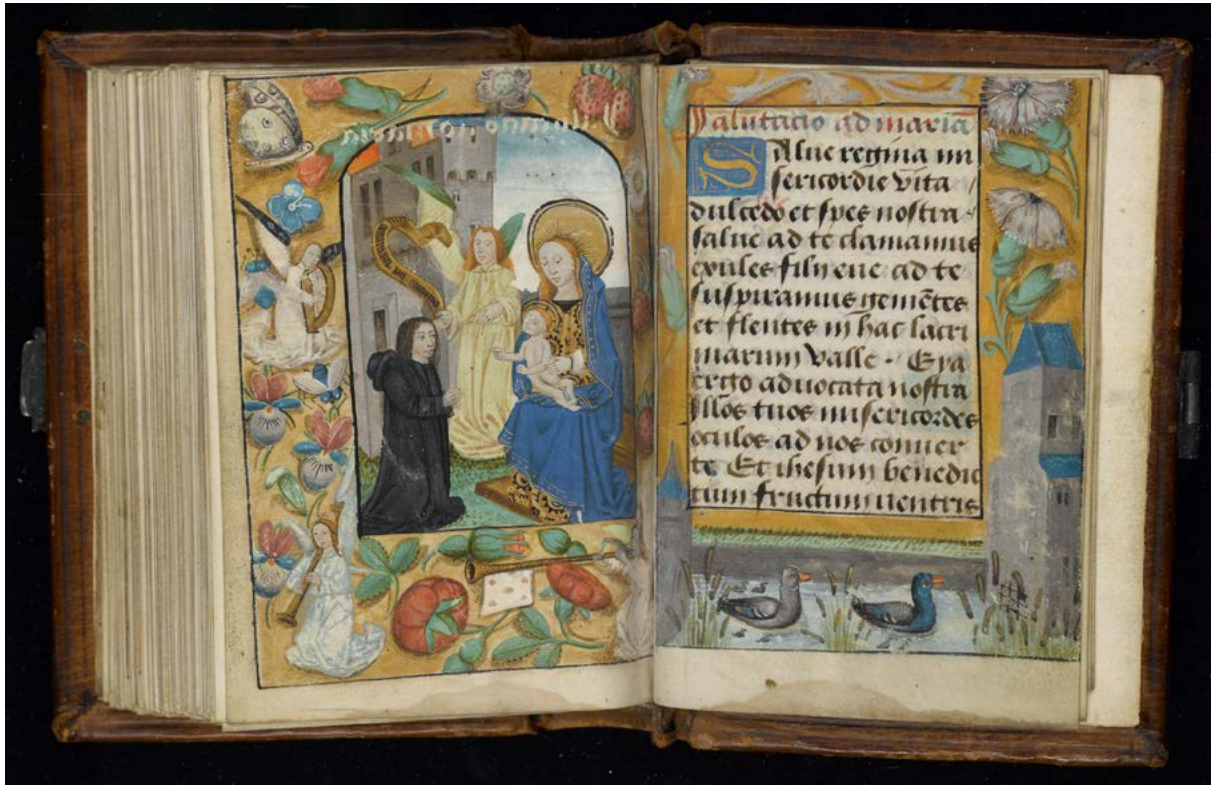 Salutacio ad mariā
Salue regina mi
sericordie vita
dulcedo et spes nostra
salue ad te clamamus
exules filij eue ad te
suspiramus gemētes
et flentes in hac lacri
marum valle Eya
ergo aduocata nostra
illos tuos misericordes
oculos ad nos conuer
te Et ihesum benedic
tum fructum uentris